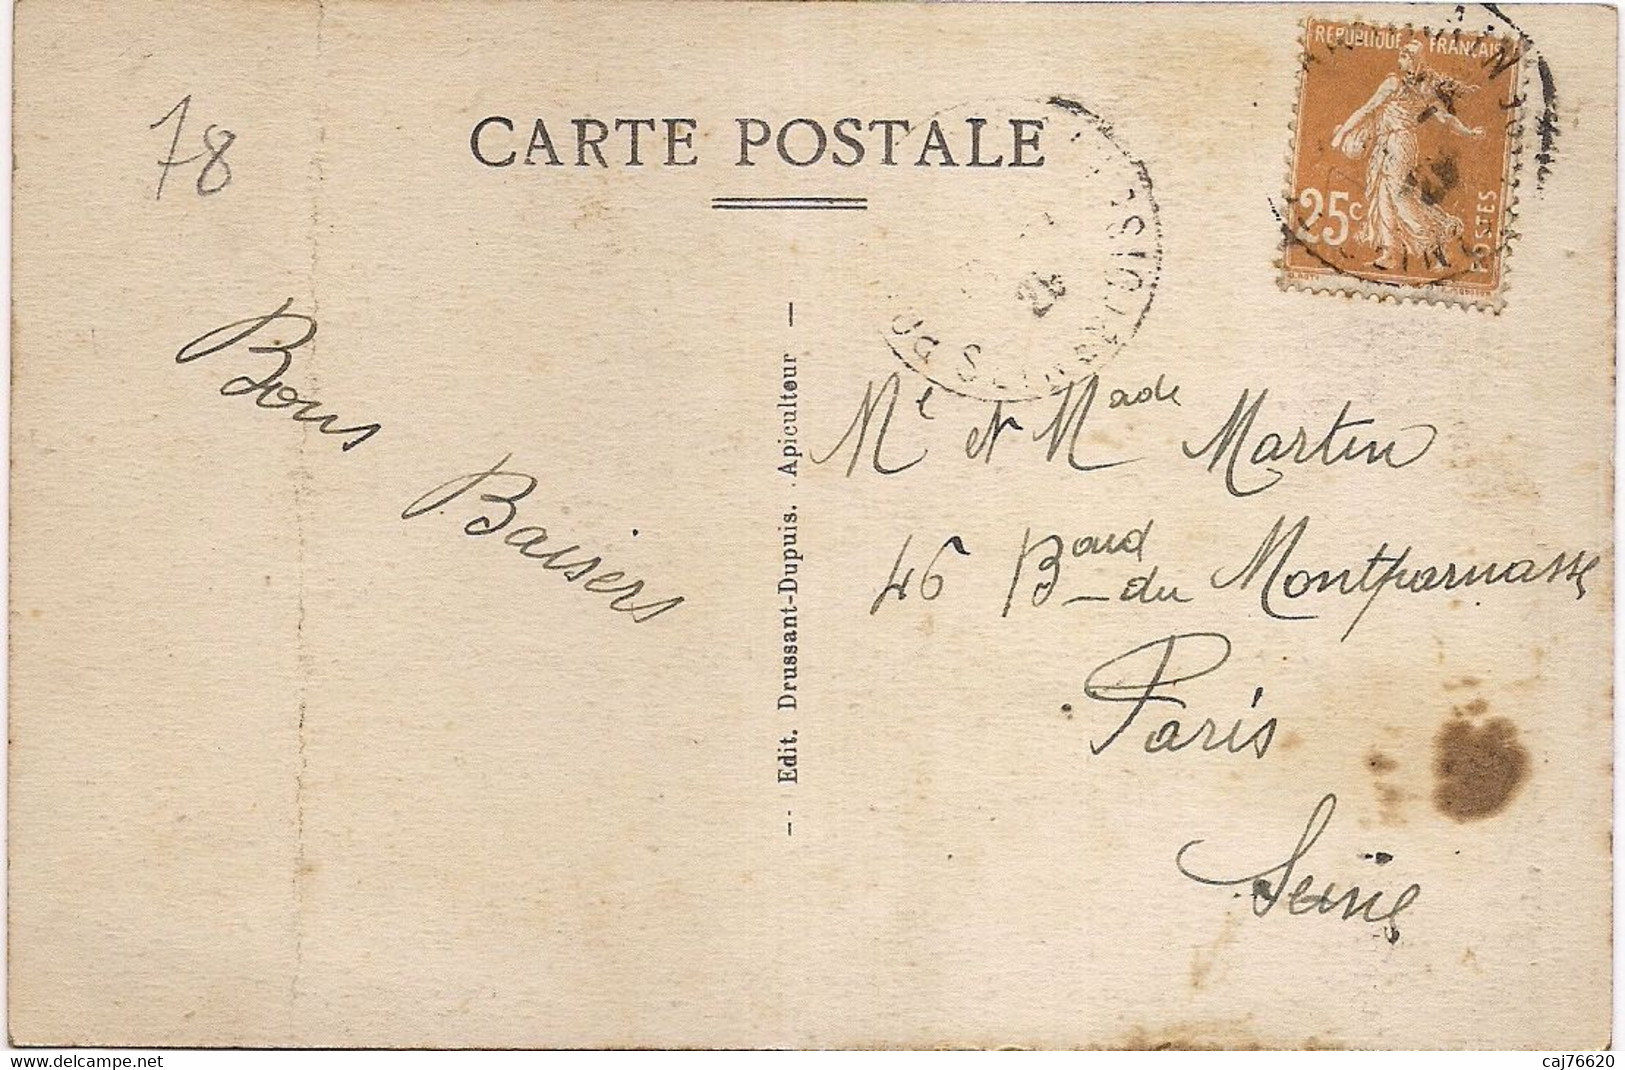 78
CARTE POSTALE
RÉPUBLIQUE FRANÇAISE
25c
POSTES
Bons
Baisers
— Edit. Drussant-Dupuis. Apiculteur —
Mr et Made Martin
46 Bard du Montparnasse
Paris
Seine
delcampe.net
caj76620